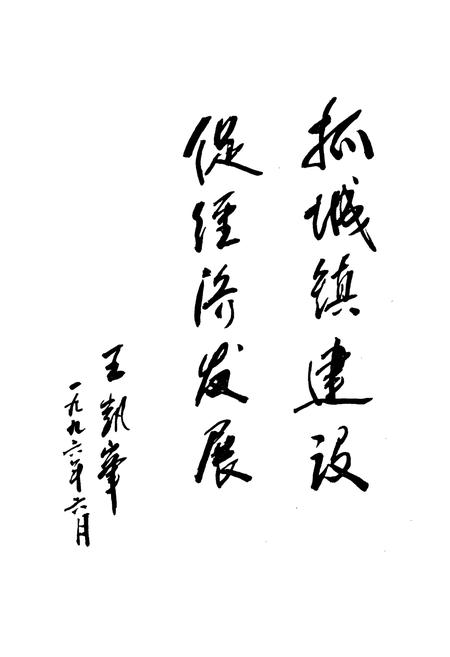 抓城镇建设
促经济发展
王凯峰
一九九六年六月